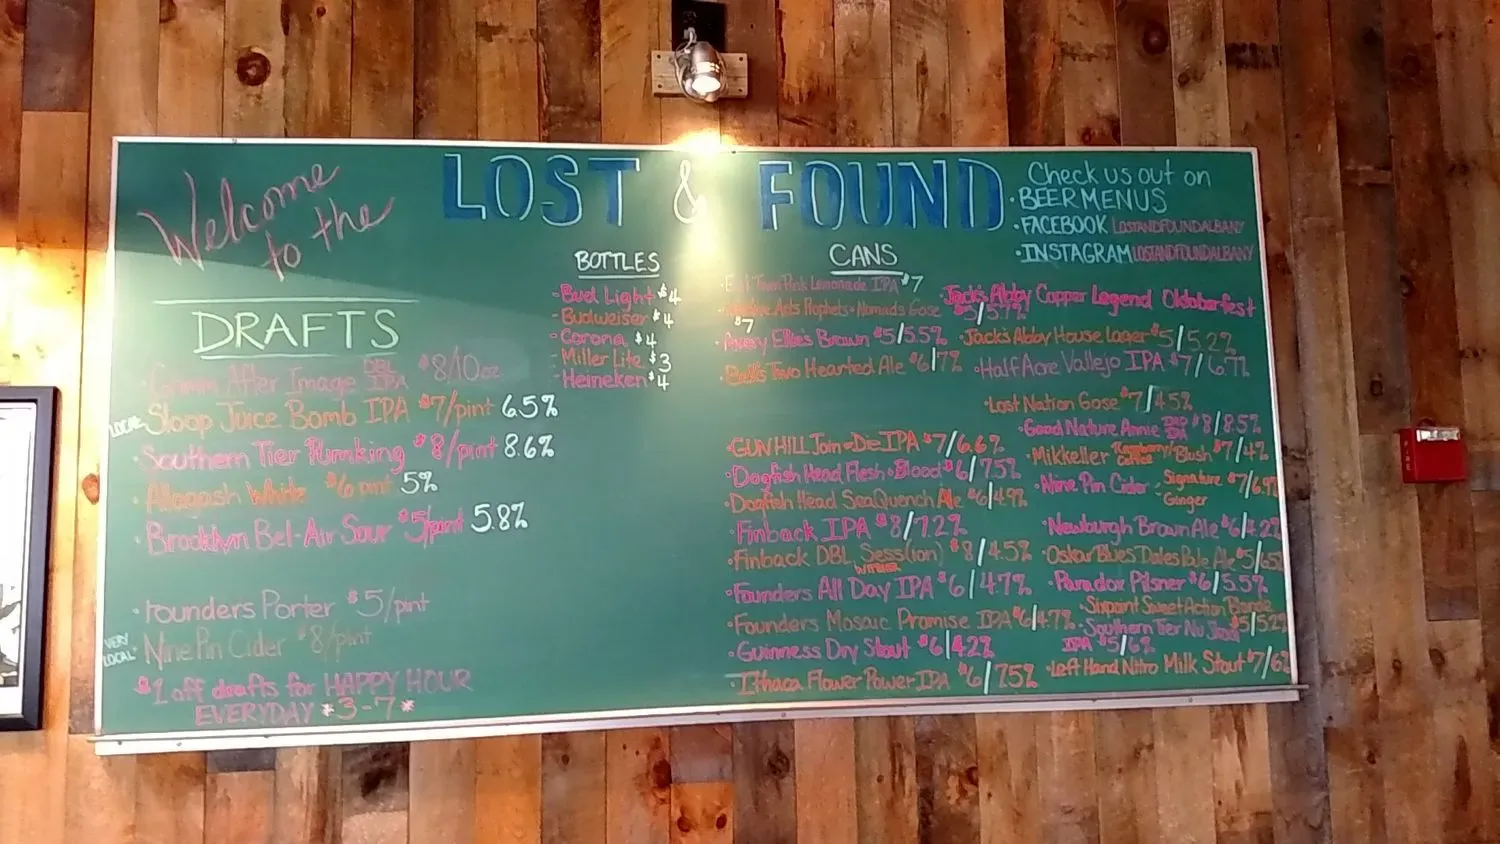 Welcome
to the
LOST & FOUND
Check us out on
· BEERMENUS
· FACEBOOK LOSTANDFOUNDALBANY
· INSTAGRAM LOSTANDFOUNDALBANY
DRAFTS
· After Image DBL IPA $8/10oz
LOCAL · Sloop Juice Bomb IPA $7/pint 6.5%
· Southern Tier Pumking $8/pint 8.6%
· Allagash White $6 pint 5%
· Brooklyn Bel-Air Sour $5/pint 5.8%
· Founders Porter $5/pint
VERY LOCAL · Nine Pin Cider $8/pint
$1 off drafts for HAPPY HOUR
EVERYDAY *3-7*
BOTTLES
- Bud Light $4
- Budweiser $4
- Corona $4
- Miller Lite $3
- Heineken $4
CANS
Town Pink Lemonade IPA $7
Acts Prophets · Nomads Gose
$7
· Avery Ellie's Brown $5/5.5%
· Bell's Two Hearted Ale $6/7%
· GUN HILL Join · De IPA $7/6.6%
· Dogfish Head Flesh · Blood $6/7.5%
· Dogfish Head SeaQuench Ale $6/4.9%
· Finback IPA $8/7.2%
· Finback DBL Sess(ion) $8/4.5%
· Founders All Day IPA $6/4.7%
· Founders Mosaic Promise IPA $6/4.7%
· Guinness Dry Stout $6/4.2%
· Ithaca Flower Power IPA $6/7.5%
Jack's Abby Copper Legend Oktoberfest
$5/5.7%
· Jack's Abby House Lager $5/5.2%
· Half Acre Vallejo IPA $7/6.7%
· Lost Nation Gose $7/4.5%
· Good Nature Annie DBL IPA $8/8.5%
· Mikkeller Raspberry Blush $7/4%
· Nine Pin Cider - Signature $7/6.9%
Ginger
· Newburgh Brown Ale $6/4.2%
· Oskar Blues Dales Pale Ale $5/6.5%
· Paradox Pilsner $6/5.5%
· Sixpoint Sweet Action Blonde
$5/5.2%
· Southern Tier Nu Skool
IPA $5/6%
· Left Hand Nitro Milk Stout $7/6%
FIRE